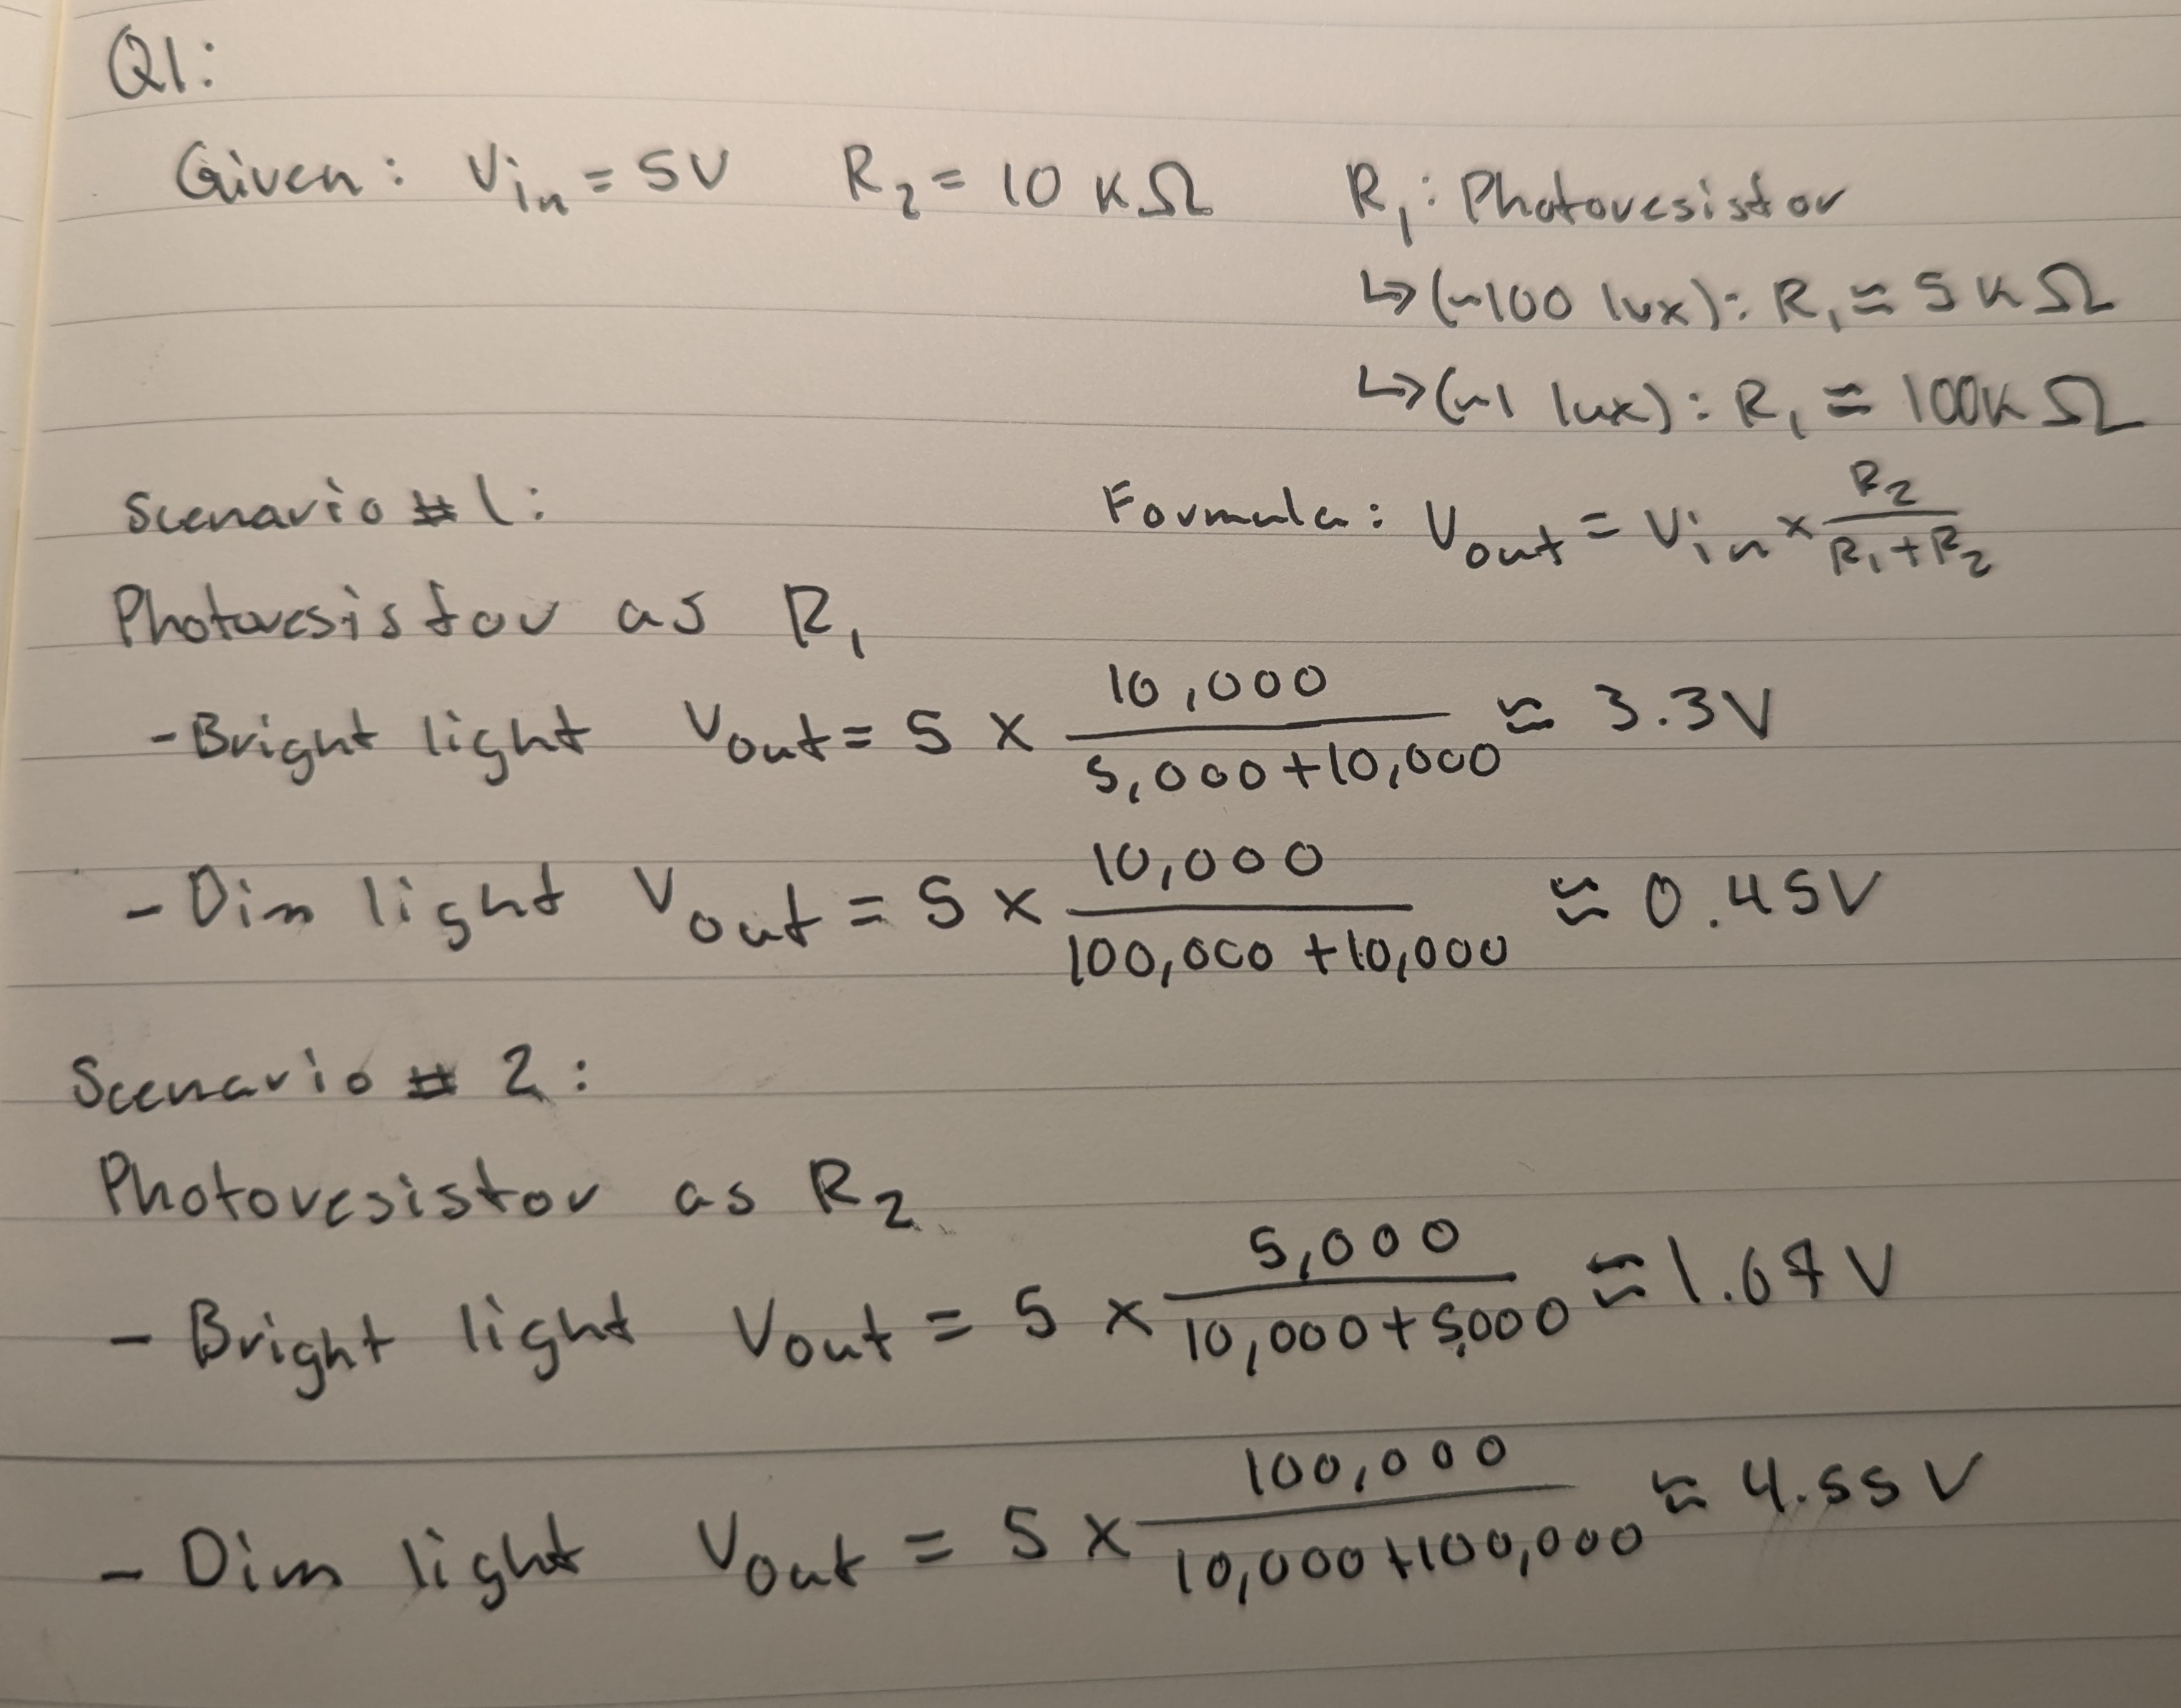 Q1:
Given: Vin = 5V R2 = 10 KΩ R1: Photoresistor
↳(~100 lux): R1 ≈ 5 KΩ
↳(~1 lux): R1 ≈ 100KΩ
Scenario #1: Formula: Vout = Vin × R2 / (R1+R2)
Photoresistor as R1
- Bright light Vout = 5 × 10,000 / (5,000+10,000) ≈ 3.3V
- Dim light Vout = 5 × 10,000 / (100,000+10,000) ≈ 0.45V
Scenario # 2:
Photoresistor as R2
- Bright light Vout = 5 × 5,000 / (10,000+5,000) ≈ 1.67V
- Dim light Vout = 5 × 100,000 / (10,000+100,000) ≈ 4.55V